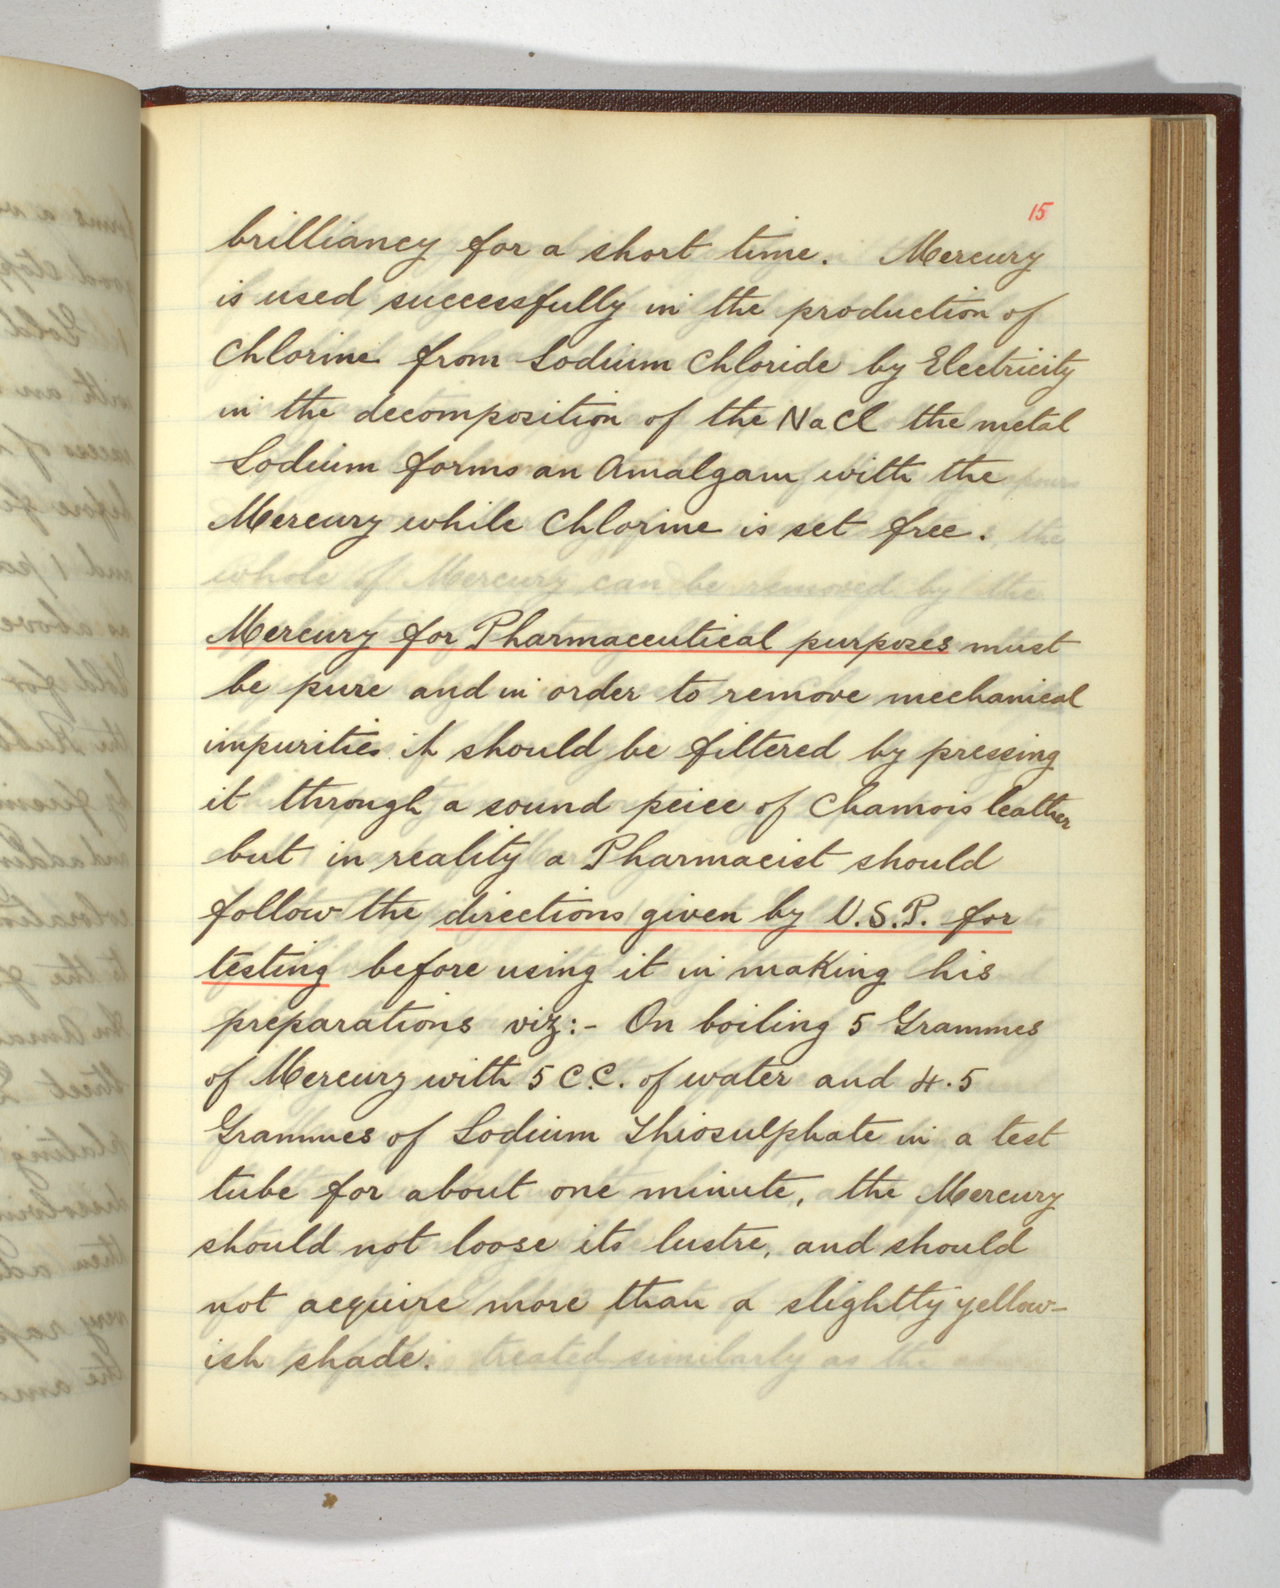 15
brilliancy for a short time. Mercury
is used successfully in the production of
Chlorine from Sodium Chloride by Electricity
in the decomposition of the NaCl the metal
Sodium forms an Amalgam with the
Mercury while Chlorine is set free.
Mercury for Pharmaceutical purposes must
be pure and in order to remove mechanical
impurities it should be filtered by pressing
it through a sound peice of Chamois leather
but in reality a Pharmacist should
follow the directions given by U.S.P. for
testing before using it in making his
preparations viz:- On boiling 5 Grammes
of Mercury with 5 C.C. of water and 4.5
Grammes of Sodium Thiosulphate in a test
tube for about one minute, the Mercury
should not loose its lustre, and should
not acquire more than a slightly yellow-
ish shade.